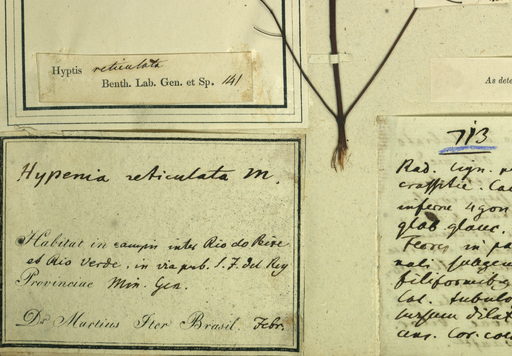 Hyptis reticulata
Benth. Lab. Gen. et Sp. 141
Hypenia reticulata M.
Habitat in campis inter Rio do Peixe
et Rio Verde, in via pub. S. J. del Rey
Provinciae Min. Gen.
Dr Martius Iter Brasil. Febr.
As dete
713
Rad. lign. 
crassitie. Cau
inferne 4gon
glab. glauc.
Flores in pa
filiformib
Cal. tubulo
sursum dilat